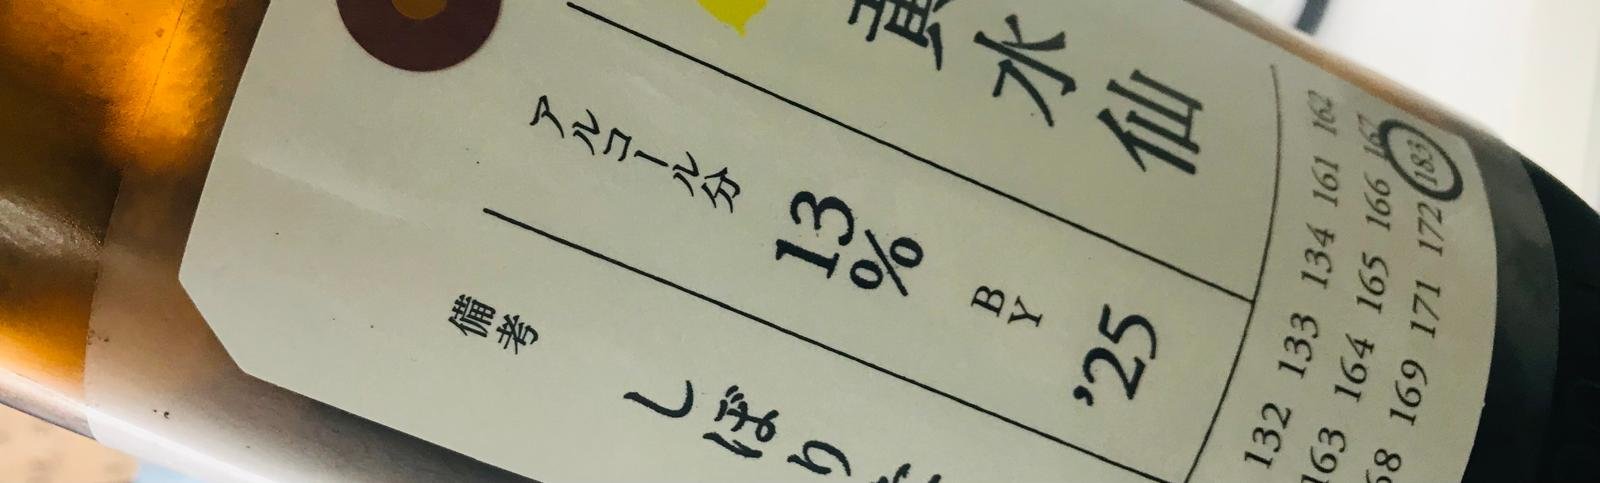 黄水仙
アルコール分 13% BY '25
備考 しぼり
132 133 134 161 162
163 164 165 166 167
68 169 171 172 183